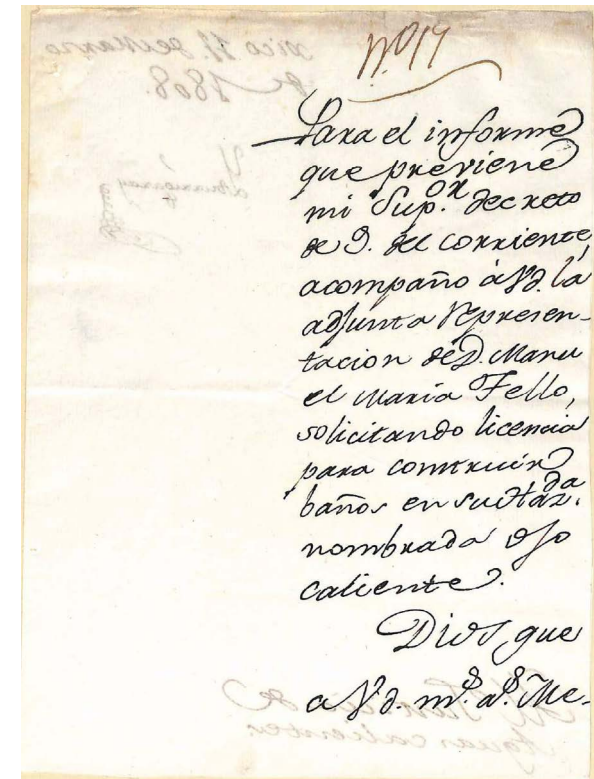 N.º 19
Para el informe
que previene
mi Sup.ᵒʳ decreto
de 9. del corriente,
acompaño à Vd. la
adjunta Represen-
tacion de D. Manu
el Maria Fello,
solicitando licencia
para construir
baños en su Haz.ᵈᵃ
nombrada Ojo
caliente.
Dios gue
a Vd. m.ˢ a.ˢ Me-
xico 11. de Marzo
de 1808.
Aguas calientes.